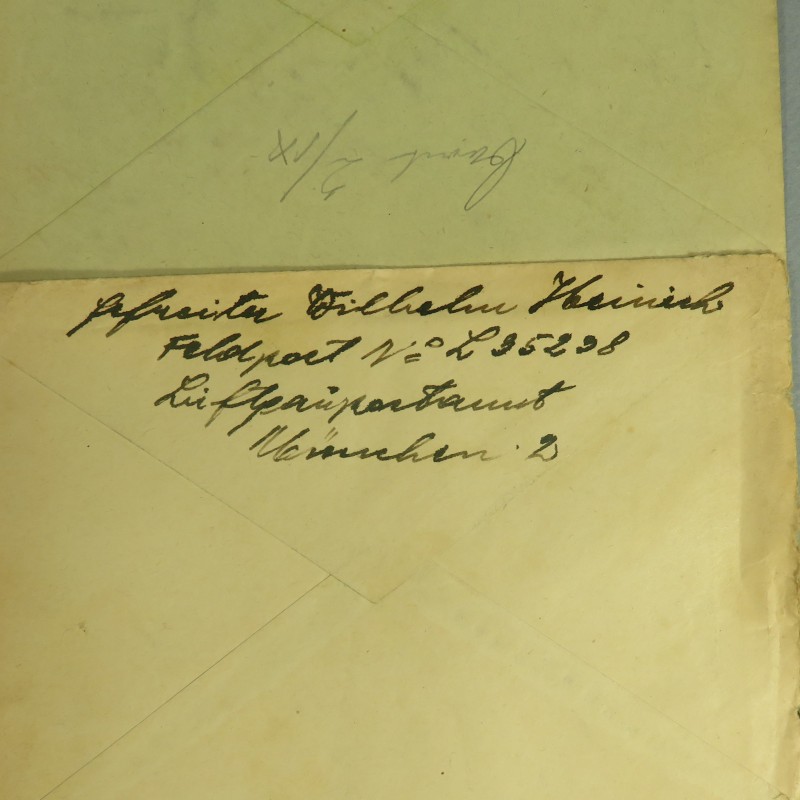 Gefreiter Wilhelm Heinisch
Feldpost No L 35238
Luftgaupostamt
München 2